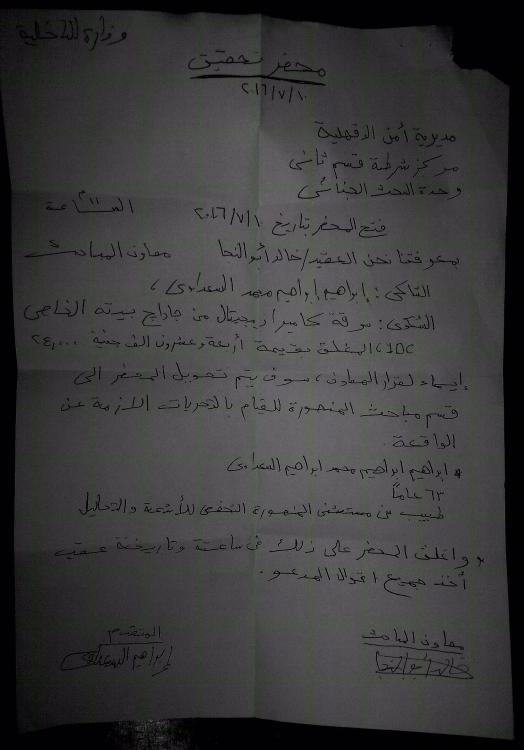 وزارة الداخلية
محضر تحقيق
٢٠١٦/٧/١٠
مديرية أمن الدقهلية
مركز شرطة قسم ثاني
وحدة البحث الجنائي
فتح المحضر بتاريخ ٢٠١٦/٧/١٠ الساعة ١١م
بمعرفتنا نحن العقيد/خالد أبو النجا معاون المباحث
الشاكي: إبراهيم إبراهيم محمد السعداوى،
الشكوى: سرقة كاميرا ديجيتال من جاراج بيته الخاص
المغلق بقيمة أربعة وعشرون الف جنية ٢٤,٠٠٠
إيماء لقرار المعاون، سوف يتم تحويل المحضر الى
قسم مباحث المنصورة للقيام بالتحريات اللازمة عن
الواقعة.
* ابراهيم ابراهيم محمد ابراهيم السعداوى
٦٣ عاماً
طبيب من مستشفى المنصورة التخصصى للأشعة والتحاليل
* واغلق المحضر على ذلك فى ساعتة وتاريخة عقب
أخذ جميع اقوال المدعو.
معاون المباحث المتقدم
خالد أبو النجا إبراهيم السعداوى